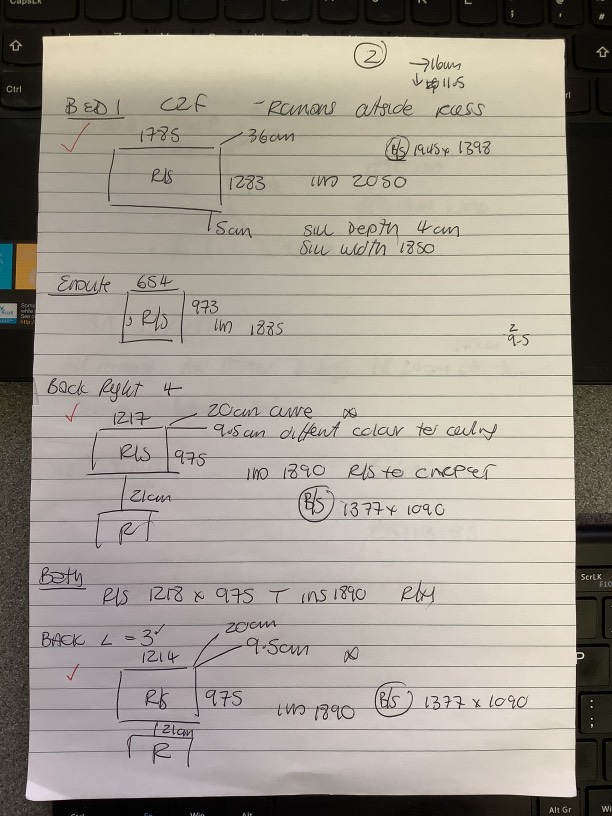 2
→16cm
↓ 11.5
BED 1 C2F - Remons outside recess
1785 36cm
B/S 1945 x 1398
R/S 1283 ins 2050
5cm Sill Depth 4cm
Sill width 1850
Ensuite 654
R/S 973
ins 1885
2
9.5
Back Right 4
1217 20cm curve
9.5cm diffent colour to ceiling
R/S 975
ins 1890 R/S to carpet
21cm
B/S 1377 x 1090
R
Bath
R/S 1218 x 975 T ins 1890
BACK L = 3
20cm
1214 9.5cm
R/S 975
ins 1890 B/S 1377 x 1090
21cm
R
Ctrl
ScrLK
F10
P
Alt Gr